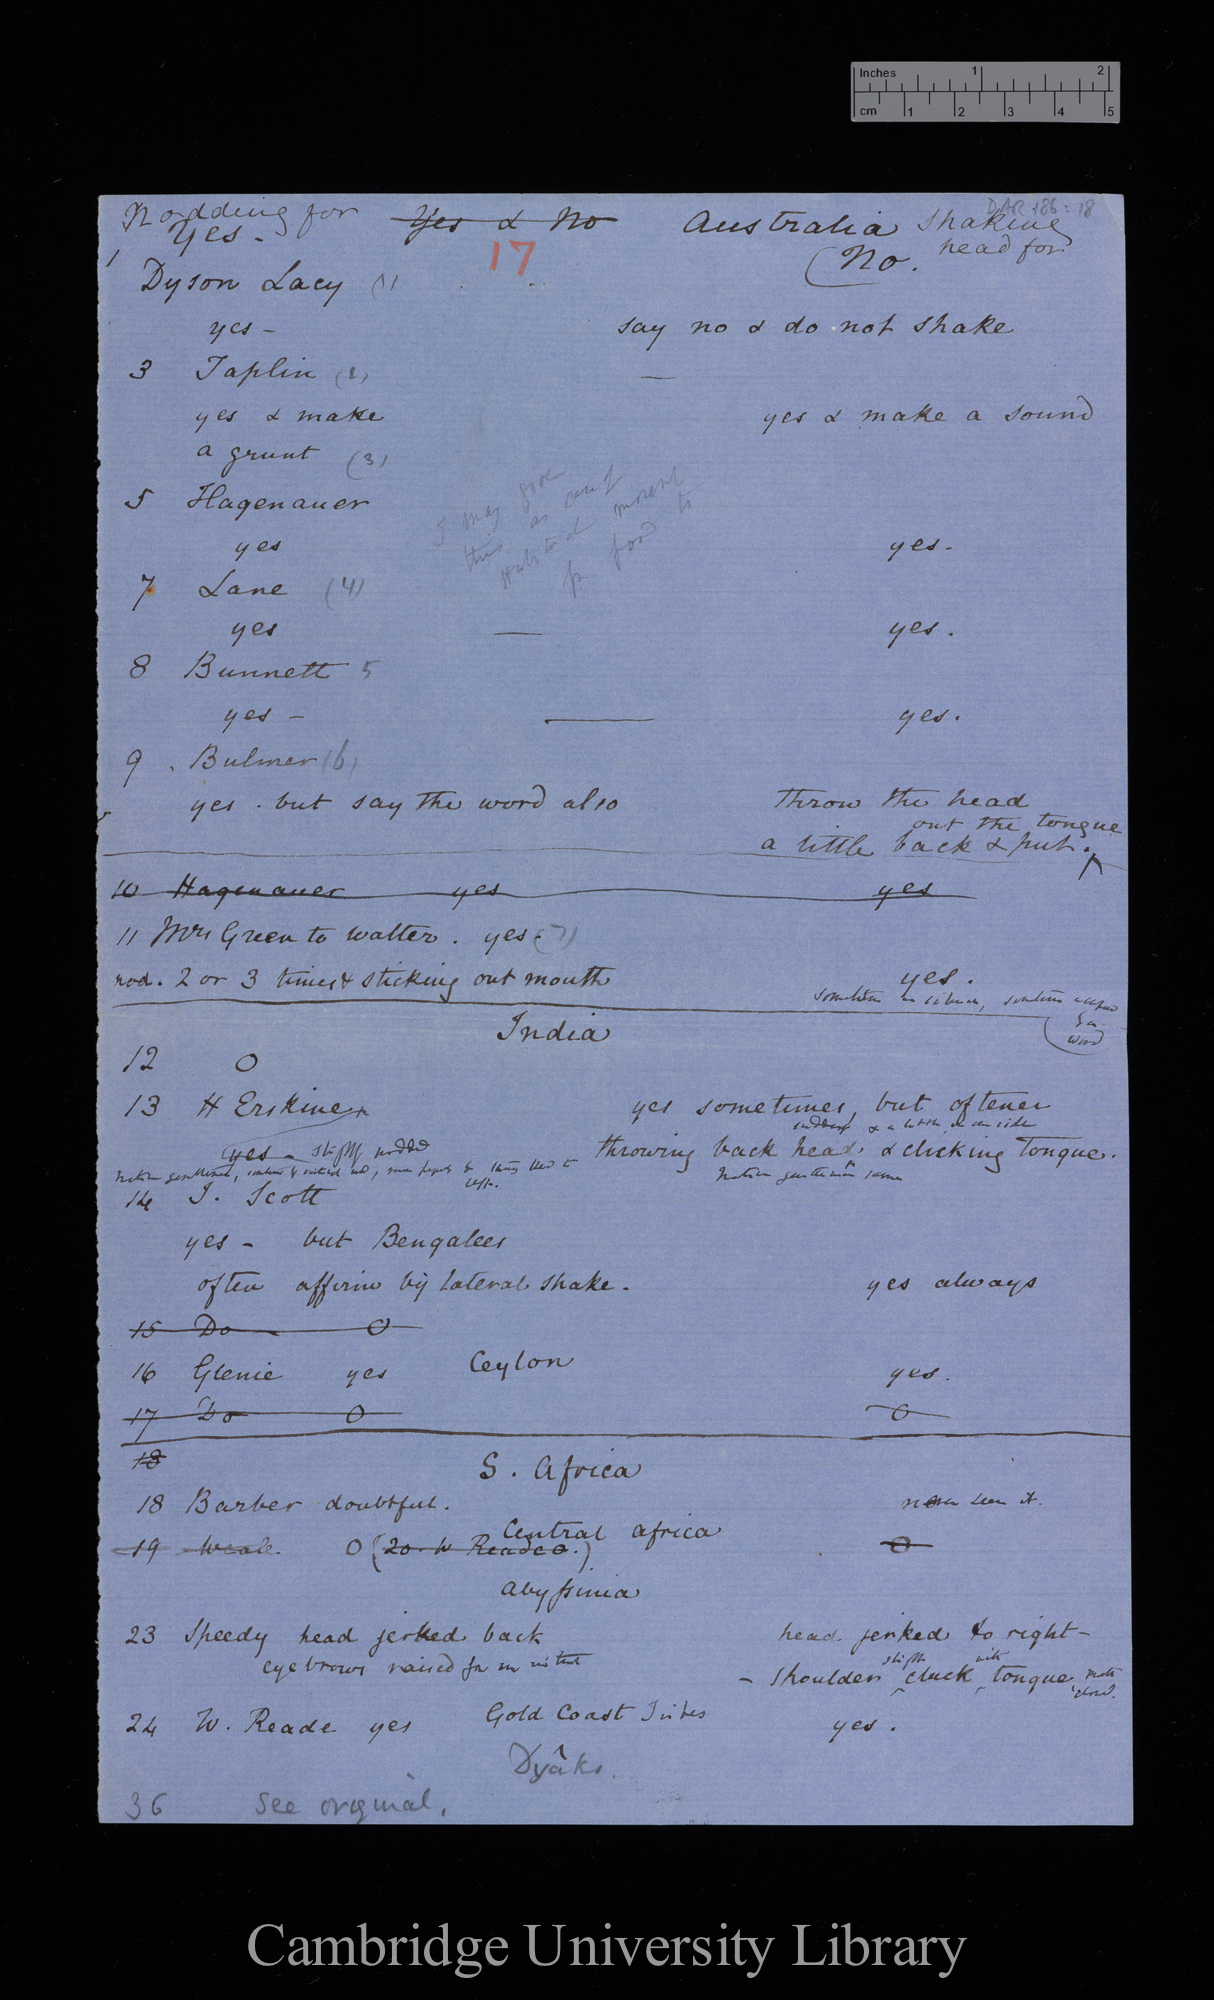 Inches 1 2
cm 1 2 3 4 5
DAR 186: 18
Nodding for Yes & No Australia Shaking
Yes. head for
17 No.
1
Dyson Lacy (1)
yes - say no & do not shake
3 Taplin (2) —
yes & make yes & make a sound
a grunt (3)
5 Hagenauer
I may give
this as case of
habitual movement
for food to
yes yes.
7 Lane (4)
yes — yes.
8 Bunnett 5
yes - — yes.
9 Bulmer (6)
yes. but say the word also throw the head
out the tongue
a little back & put.
10 Hagenauer yes yes
11 Mrs Green to Walter. yes. (7)
nod. 2 or 3 times & sticking out mouth yes.
sometimes in silence, sometimes
word
India
12 0
13 H Erskine yes sometimes, but oftener
suddenly & a little on one side
yes - slightly nodded throwing back head & clicking tongue.
Native gentlemen same
left.
14 J. Scott
yes - but Bengalees
often affirm by lateral shake. yes always
15 Do 0
16 Glenie yes Ceylon yes.
17 Do 0 0
18
S. Africa
18 Barber doubtful. never seen it.
Central Africa
19 Weale. 0 (20. W Reade 0.) 0
Abyssinia
23 Speedy head jerked back head jerked to right -
eyebrows raised for an instant
slight with
- shoulder cluck tongue, mouth
closed.
24 W. Reade yes Gold Coast Tribes yes.
Dyâks.
36 See original.
Cambridge University Library